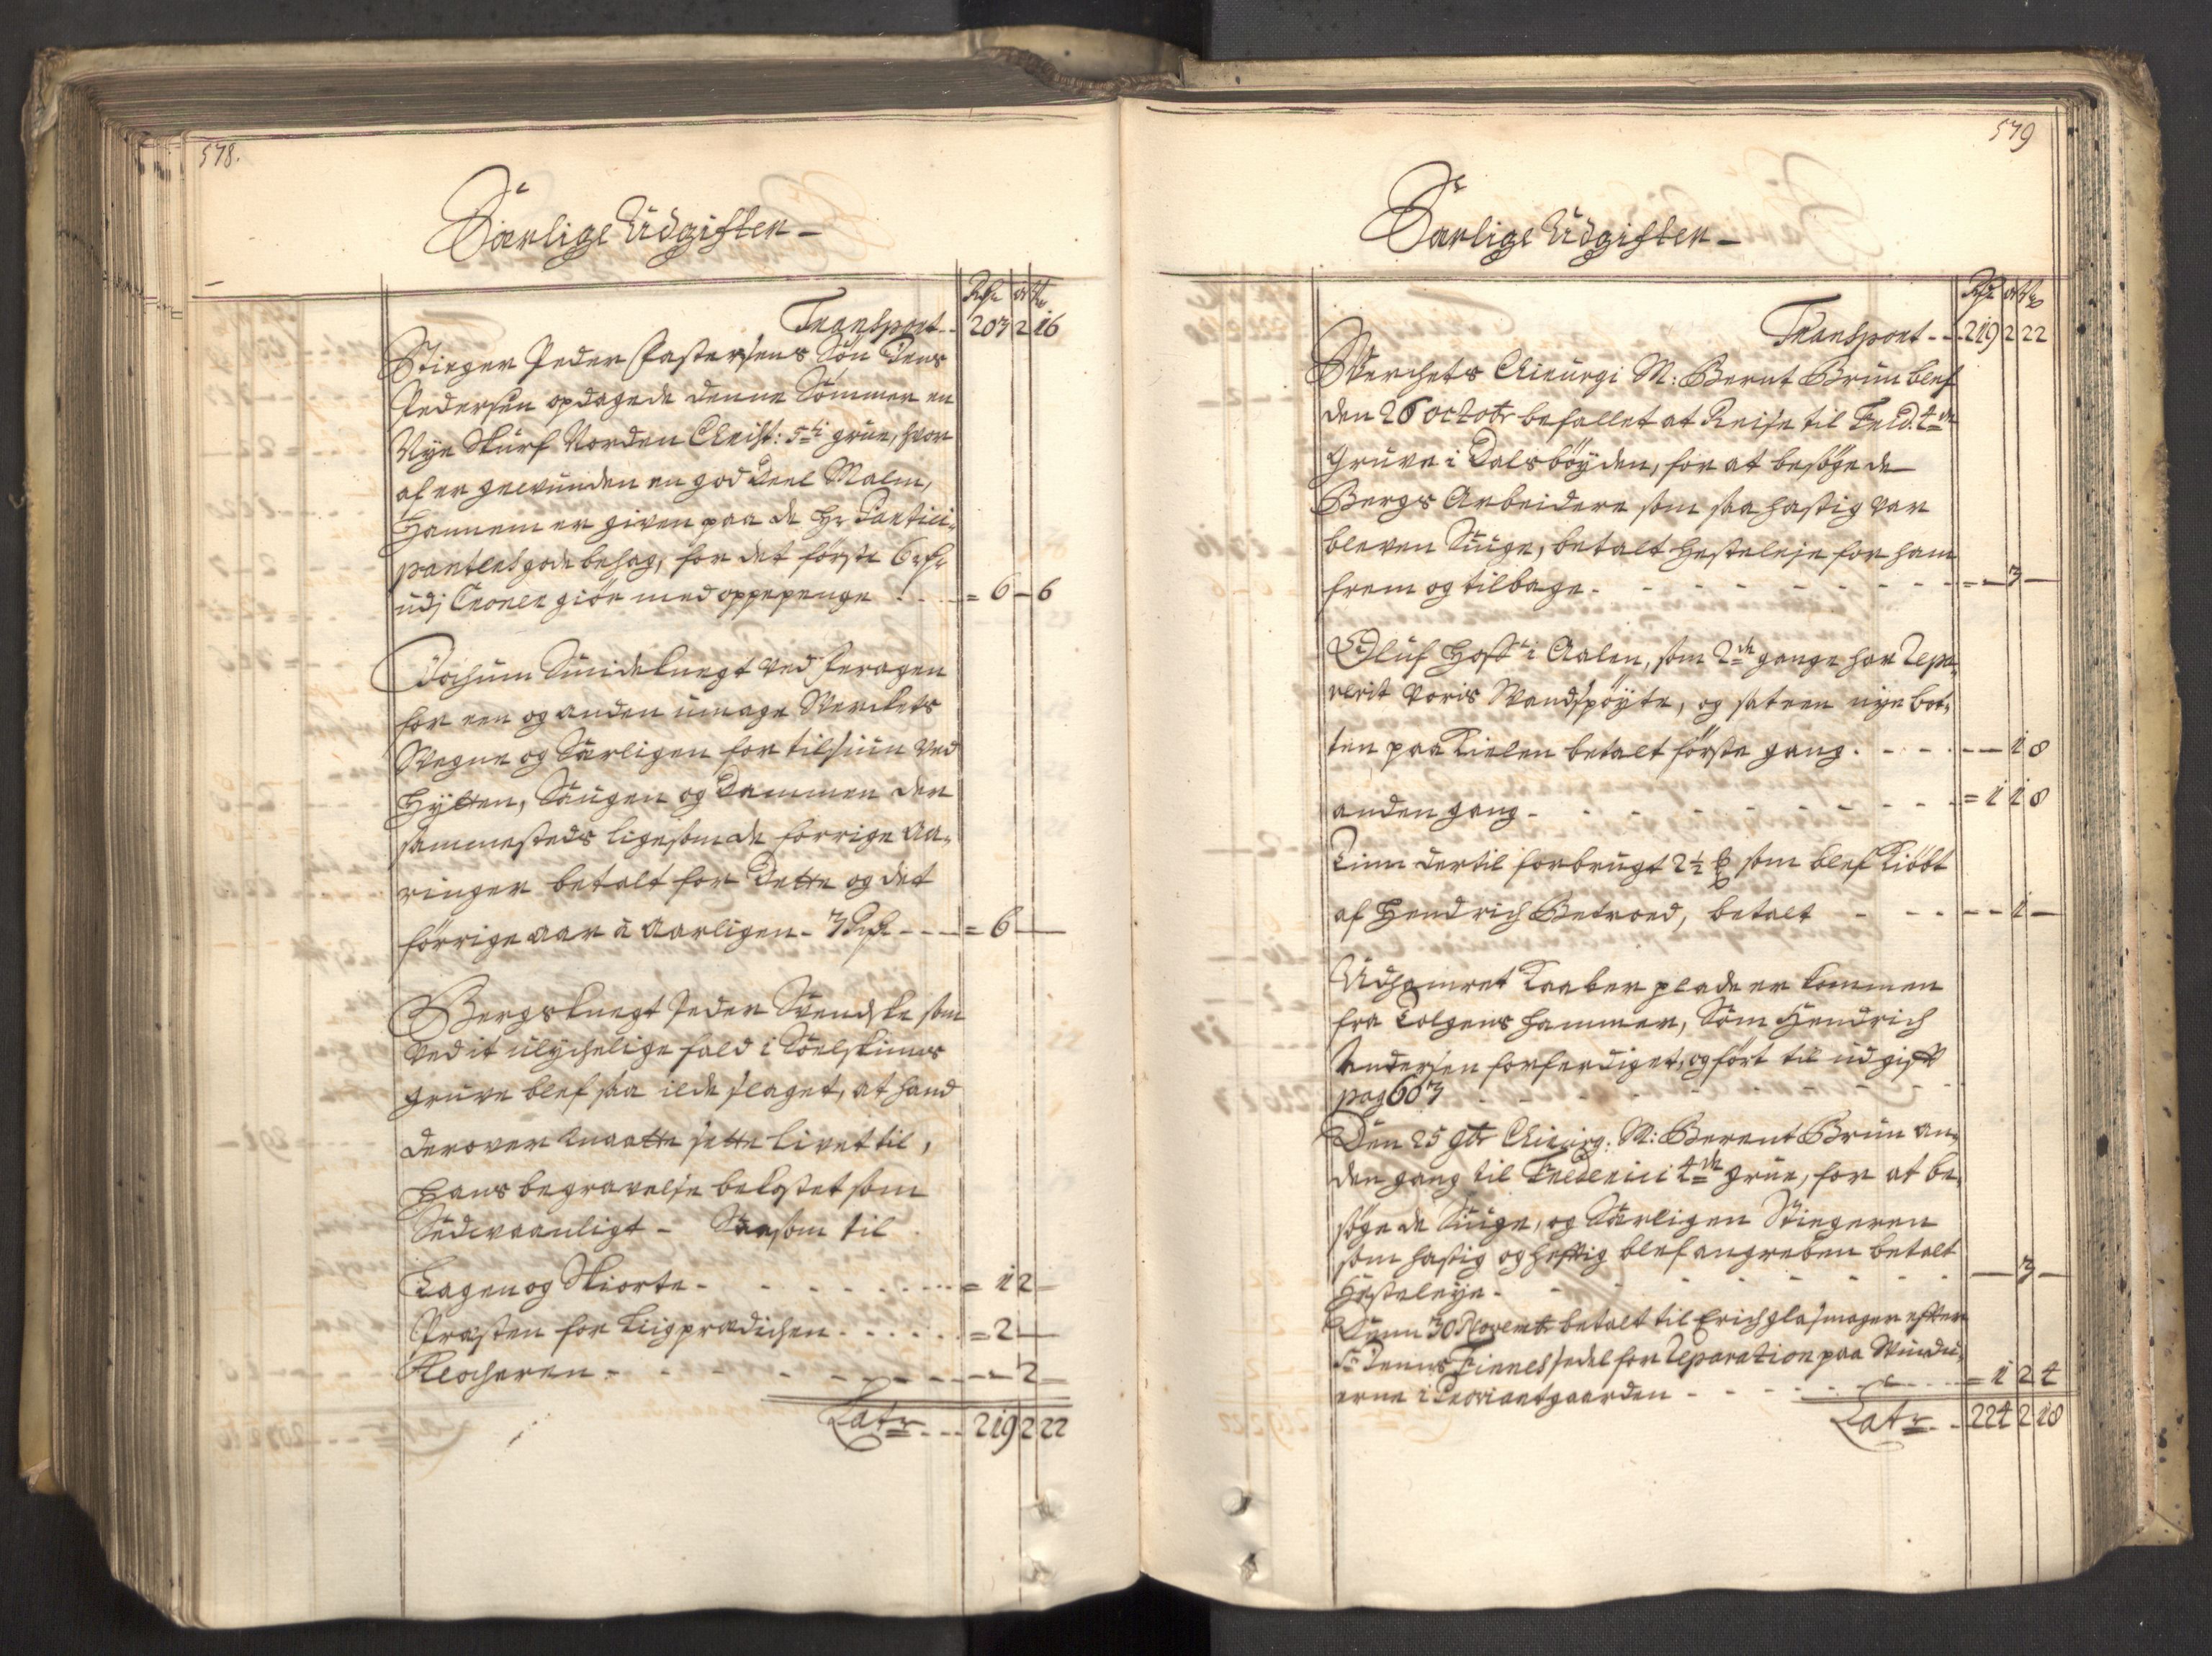 578.
Særlige Udgifter
Rdr ort ß
Transport - 203 2 16
Stieger Peder Castersens Søn Jens
Pedersøn opdagede denne Sommer en
Nye Skurf Norden Christ: 5ti grue, hvor
af er gewunden en god deel Malm,
Hannem er given paa de Hr Partici-
panters gode behag, for det første 6 rdr
udj Croner giör med oppepenge = 6 - 6
Jochum Smideknegt ved
for een og anden umage Werckets
Wegne og Særligen for tilsiun ved
Hytten, Saugen og Dammen der
sammesteds ligesom de forrige Aa-
ringer betalt for Dette og det
förrige aar à Aarligen - 3 Rdr = 6 -
Bergsknegt Peder Svendske som
ved it ulychelige fald i
gruve blef saa ilde slaget, at hand
derover maatte sette livet til,
Hans begravelse bekostet som
Sedwaanligt - Saasom til
Lagen og Skiorte - = 1 2 -
Præsten for Liigprædichen = 2 -
Klocheren - - - 2 -
Latr 219 2 22
579
Særlige Udgifter
Rdr ort ß
Transport - 219 2 22
Werchets Chirurgi M: Bernt Brun blef
den 26 octobr befallet at Reise til Frid: 4de
Gruve i Dalsböyden, for at besöge de
Bergs Arbeidere som saa hastig var
bleven Siuge, betalt Hesteleje for ham
frem og tilbage - = - 3 -
Oluf Hoff i Aalen, som 2de gange har Repa-
rerit voris Wandspöyte, og sat een nye bot-
ten paa Kielen betalt förste gang - - 1 8
anden gang - = 1 1 8
Tinn dertil forbrugt 2½ ℔ som blef Kiöbt
af Hendrich betalt - - 1 -
Udhamret Kaaber plade er kommen
fra Tolgens Hammer, Som Hendrich
Andersen forferdiget, og fört til udgift
pag 603
Den 25 9br Chirurg: M: Berent Brun an-
den gang til Friderici 4de grue, for at be-
söge de Siuge, og Særligen Stiegeren
som hastig og heftig blef angreben betalt
Hesteleye - - 3 -
Dend 30 Novembr betalt til Erich glasmager efter
Sr Jenns sedel for Reparation paa Windu-
erne i Proviantgaarden - = 1 2 4
Latr - 224 2 18